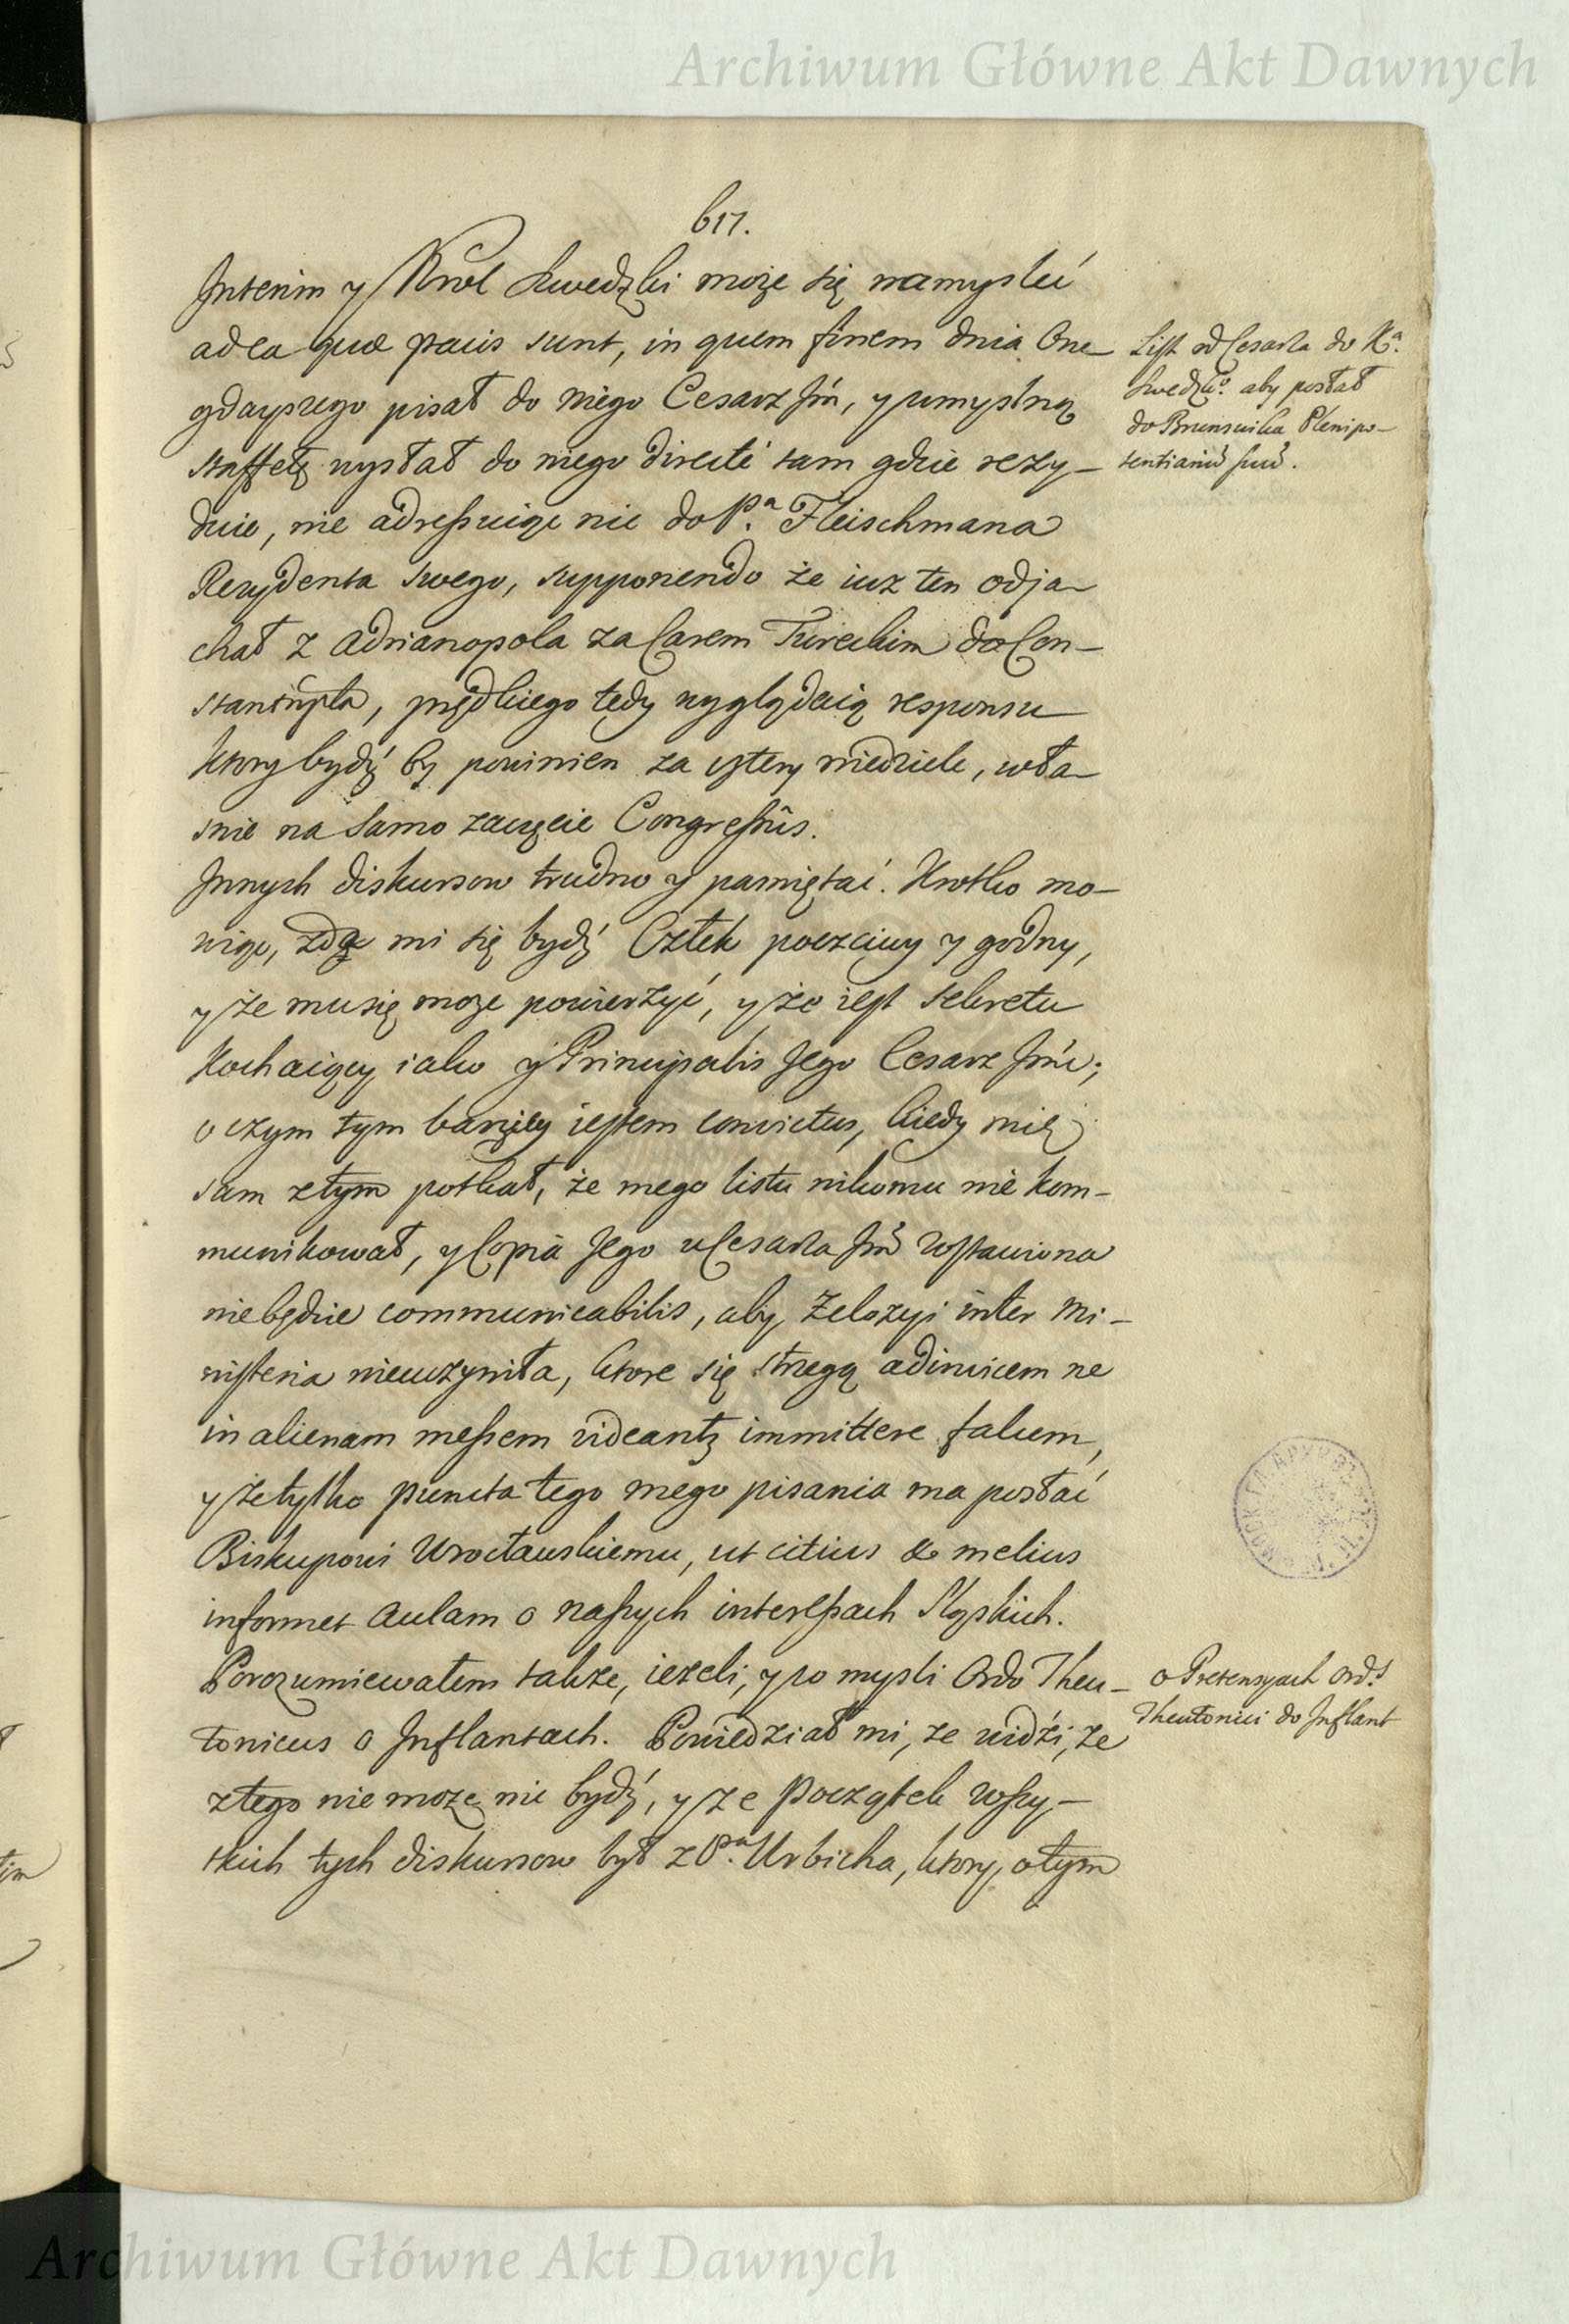 Archiwum Główne Akt Dawnych
617.
Interim y Krol Swedzki może się namysleć
ad ea quæ pacis sunt, in quem finem dnia One
gdayszego pisał do niego Cesarz Jm̃, y umyslną
staffetę wysłał do niego directè tam gdzie rezy-
duie, nie adressuiąc nic do P.ª Fleischmana
Rezydenta swego, supponendo że iuz ten odja-
chał z Adrianopola za Carem Tureckim do Con-
stantnpla, prędkiego tędy wyglądaią responsu
ktory bydź by powinien za cztery niedziele, wła-
snie na samo zaczęcie Congressûs.
Innych diskursow trudno y pamiętać. Krotko mo-
wiąc, zda mi się bydź Człek poczciwy y godny,
y że mu się moze powierzyć, y że iest sekretu
kochaiący iako y Principalis Jego Cesarz Jmć;
o czym tym barziey iestem convictus, kiedy mię
sam z tym potkał, że mego listu nikomu nie kom-
munikował, y Copia Jego u Cesarza Jm̃ zostawiona
nie będzie communicabilis, aby Zelozyi inter Mi-
nisteria nieuczyniła, ktore się strzegą adinvicem ne
in alienam messem videantz immittere falcem,
y że tylko puncta tego mego pisania ma posłać
Biskupowi Wrocławskiemu, ut citius & melius
informet Aulam o naszych interessach Sląskich.
Porozumiewałem takze, iezeli, y po mysli Ordo Theu-
tonicus o Inflantach. Powiedział mi, ze widźi, ze
z tego nie moze nic bydź, y ze początek wszy-
tkich tych diskursow był z P.ª Urbicha, ktory o tym
List od Cesarza do K.ª
Swedzk.º aby posłał
do Brunswika Plenipo-
tentiariũ suũ.
o Pretensyach Ord.s
Theutonici do Inflant
Archiwum Główne Akt Dawnych